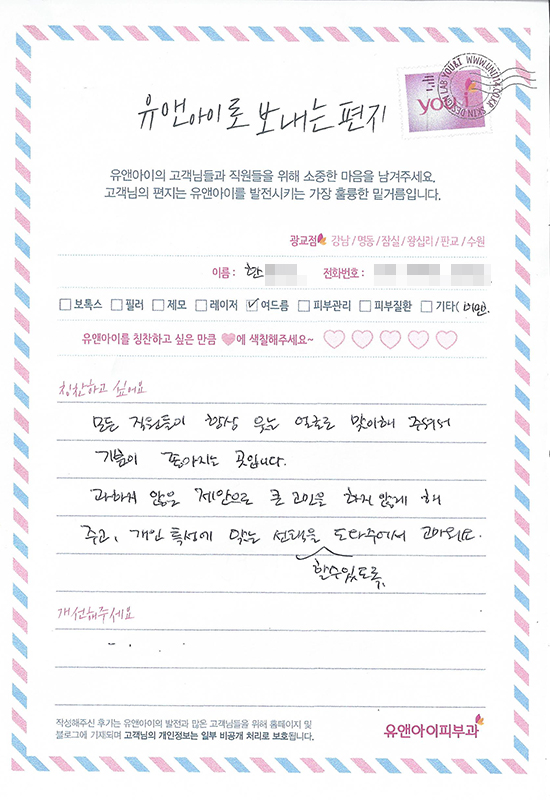 SKIN DESIGN LAB YOU&I WWW.UNI114.CO.KR
you i
유앤아이로 보내는 편지
유앤아이의 고객님들과 직원들을 위해 소중한 마음을 남겨주세요.
고객님의 편지는 유앤아이를 발전시키는 가장 훌륭한 밑거름입니다.
광교점 강남 / 명동 / 잠실 / 왕십리 / 판교 / 수원
이름 : 한 전화번호 :
보톡스 필러 제모 레이저 ✓여드름 피부관리 피부질환 기타( 비만).
유앤아이를 칭찬하고 싶은 만큼 에 색칠해주세요~
칭찬하고 싶어요
모든 직원들이 항상 웃는 얼굴로 맞이해 주셔서
기분이 좋아지는 곳입니다.
과하지 않은 제안으로 큰 고민을 하지 않게 해
주고, 개인 특성에 맞는 선택을 도와주어서 고마워요.
할수있도록,
개선해주세요
작성해주신 후기는 유앤아이의 발전과 많은 고객님들을 위해 홈페이지 및
블로그에 기재되며 고객님의 개인정보는 일부 비공개 처리로 보호됩니다.
유앤아이피부과